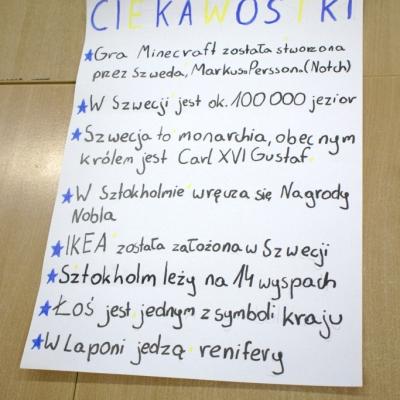 CIEKAWOSTKI
Gra Minecraft została stworzona
przez Szweda, Markus Persson. (Notch)
W Szwecji jest ok. 100 000 jezior
Szwecja to monarchia, obecnym
królem jest Carl XVI Gustaf.
W Sztokholmie wręcza się Nagrody
Nobla
IKEA została założona w Szwecji
Sztokholm leży na 14 wyspach
Łoś jest jednym z symboli kraju
W Laponi jedzą renifery